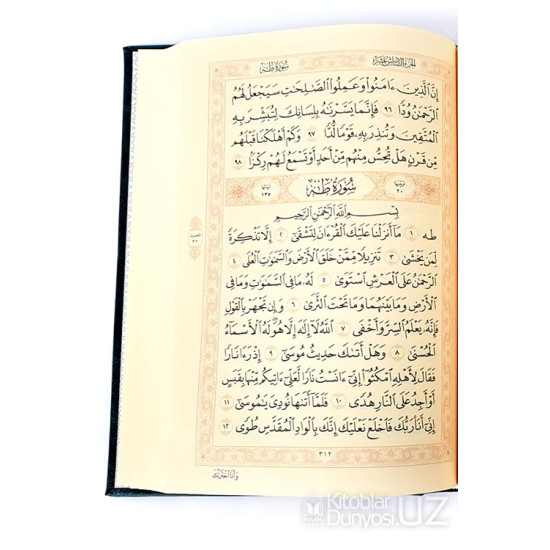 الجزء السادس عشر
سورة طه
إِنَّ ٱلَّذِينَ ءَامَنُوا۟ وَعَمِلُوا۟ ٱلصَّـٰلِحَـٰتِ سَيَجْعَلُ لَهُمُ
ٱلرَّحْمَـٰنُ وُدًّا ٩٦ فَإِنَّمَا يَسَّرْنَـٰهُ بِلِسَانِكَ لِتُبَشِّرَ بِهِ
ٱلْمُتَّقِينَ وَتُنذِرَ بِهِۦ قَوْمًا لُّدًّا ٩٧ وَكَمْ أَهْلَكْنَا قَبْلَهُم
مِّن قَرْنٍ هَلْ تُحِسُّ مِنْهُم مِّنْ أَحَدٍ أَوْ تَسْمَعُ لَهُمْ رِكْزًۢا ٩٨
ترتيبها ٢٠ سُورَةُ طه آياتها ١٣٥
بِسْمِ ٱللَّهِ ٱلرَّحْمَـٰنِ ٱلرَّحِيمِ
طه ١ مَآ أَنزَلْنَا عَلَيْكَ ٱلْقُرْءَانَ لِتَشْقَىٰٓ ٢ إِلَّا تَذْكِرَةً
لِّمَن يَخْشَىٰ ٣ تَنزِيلًا مِّمَّنْ خَلَقَ ٱلْأَرْضَ وَٱلسَّمَـٰوَٰتِ ٱلْعُلَى ٤
ٱلرَّحْمَـٰنُ عَلَى ٱلْعَرْشِ ٱسْتَوَىٰ ٥ لَهُۥ مَا فِى ٱلسَّمَـٰوَٰتِ وَمَا فِى
ٱلْأَرْضِ وَمَا بَيْنَهُمَا وَمَا تَحْتَ ٱلثَّرَىٰ ٦ وَإِن تَجْهَرْ بِٱلْقَوْلِ
فَإِنَّهُۥ يَعْلَمُ ٱلسِّرَّ وَأَخْفَى ٧ ٱللَّهُ لَآ إِلَـٰهَ إِلَّا هُوَ لَهُ ٱلْأَسْمَآءُ
ٱلْحُسْنَىٰ ٨ وَهَلْ أَتَىٰكَ حَدِيثُ مُوسَىٰٓ ٩ إِذْ رَءَا نَارًا
فَقَالَ لِأَهْلِهِ ٱمْكُثُوٓا۟ إِنِّىٓ ءَانَسْتُ نَارًا لَّعَلِّىٓ ءَاتِيكُم مِّنْهَا بِقَبَسٍ
أَوْ أَجِدُ عَلَى ٱلنَّارِ هُدًى ١٠ فَلَمَّآ أَتَىٰهَا نُودِىَ يَـٰمُوسَىٰٓ ١١
إِنِّىٓ أَنَا۠ رَبُّكَ فَٱخْلَعْ نَعْلَيْكَ إِنَّكَ بِٱلْوَادِ ٱلْمُقَدَّسِ طُوًى ١٢
٣١٢
وأنا اخترتك
Kitoblar
Dunyosi.UZ